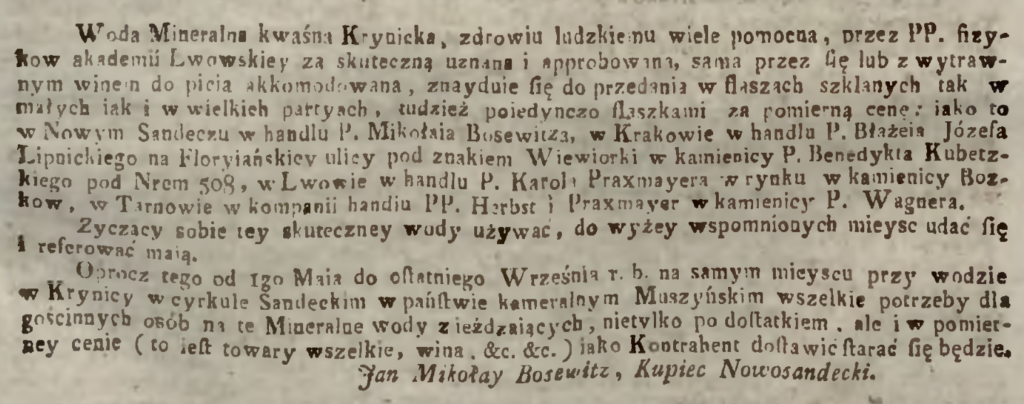 Woda Mineralna kwaśna Krynicka, zdrowiu ludzkiemu wiele pomocna, przez PP. fizy-
kow akademii Lwowskiey za skuteczną uznana i approbowana, sama przez ſię lub z wytraw-
nym winem do picia akkomodowana, znayduie ſię do przedania w flaszach szklanych tak w
małych iak i w wielkich partyach, tudzież poiedynczo flaszkami za pomierną cenę: iako to
w Nowym Sandeczu w handlu P. Mikołaia Bosewitza, w Krakowie w handlu P. Błażeia Józefa
Lipnickiego na Floryiańskiey ulicy pod znakiem Wiewiorki w kamienicy P. Benedykta Kubetz-
kiego pod Nrem 508, w Lwowie w handlu P. Karola Praxmayera w rynku w kamienicy Boz-
kow, w Tarnowie w kompanii handlu PP. Herbst i Praxmayer w kamienicy P. Wagnera.
Zyczący sobie tey skuteczney wody używać, do wyżey wspomnionych mieysc udać ſię
i referować maią.
Oprocz tego od 1go Maia do oſtatniego Września r. b. na samym mieyscu przy wodzie
w Krynicy w cyrkule Sandeckim w pańſtwie kameralnym Muszyńskim wszelkie potrzeby dla
gościnnych osób na te Mineralne wody zieżdzaiących, nietylko podoſtatkiem, ale i w pomier-
ney cenie (to ieſt towary wszelkie, wina, &c. &c.) iako Kontrahent doſtawić ſtarać ſię będzie.
Jan Mikołay Bosewitz, Kupiec Nowosandecki.